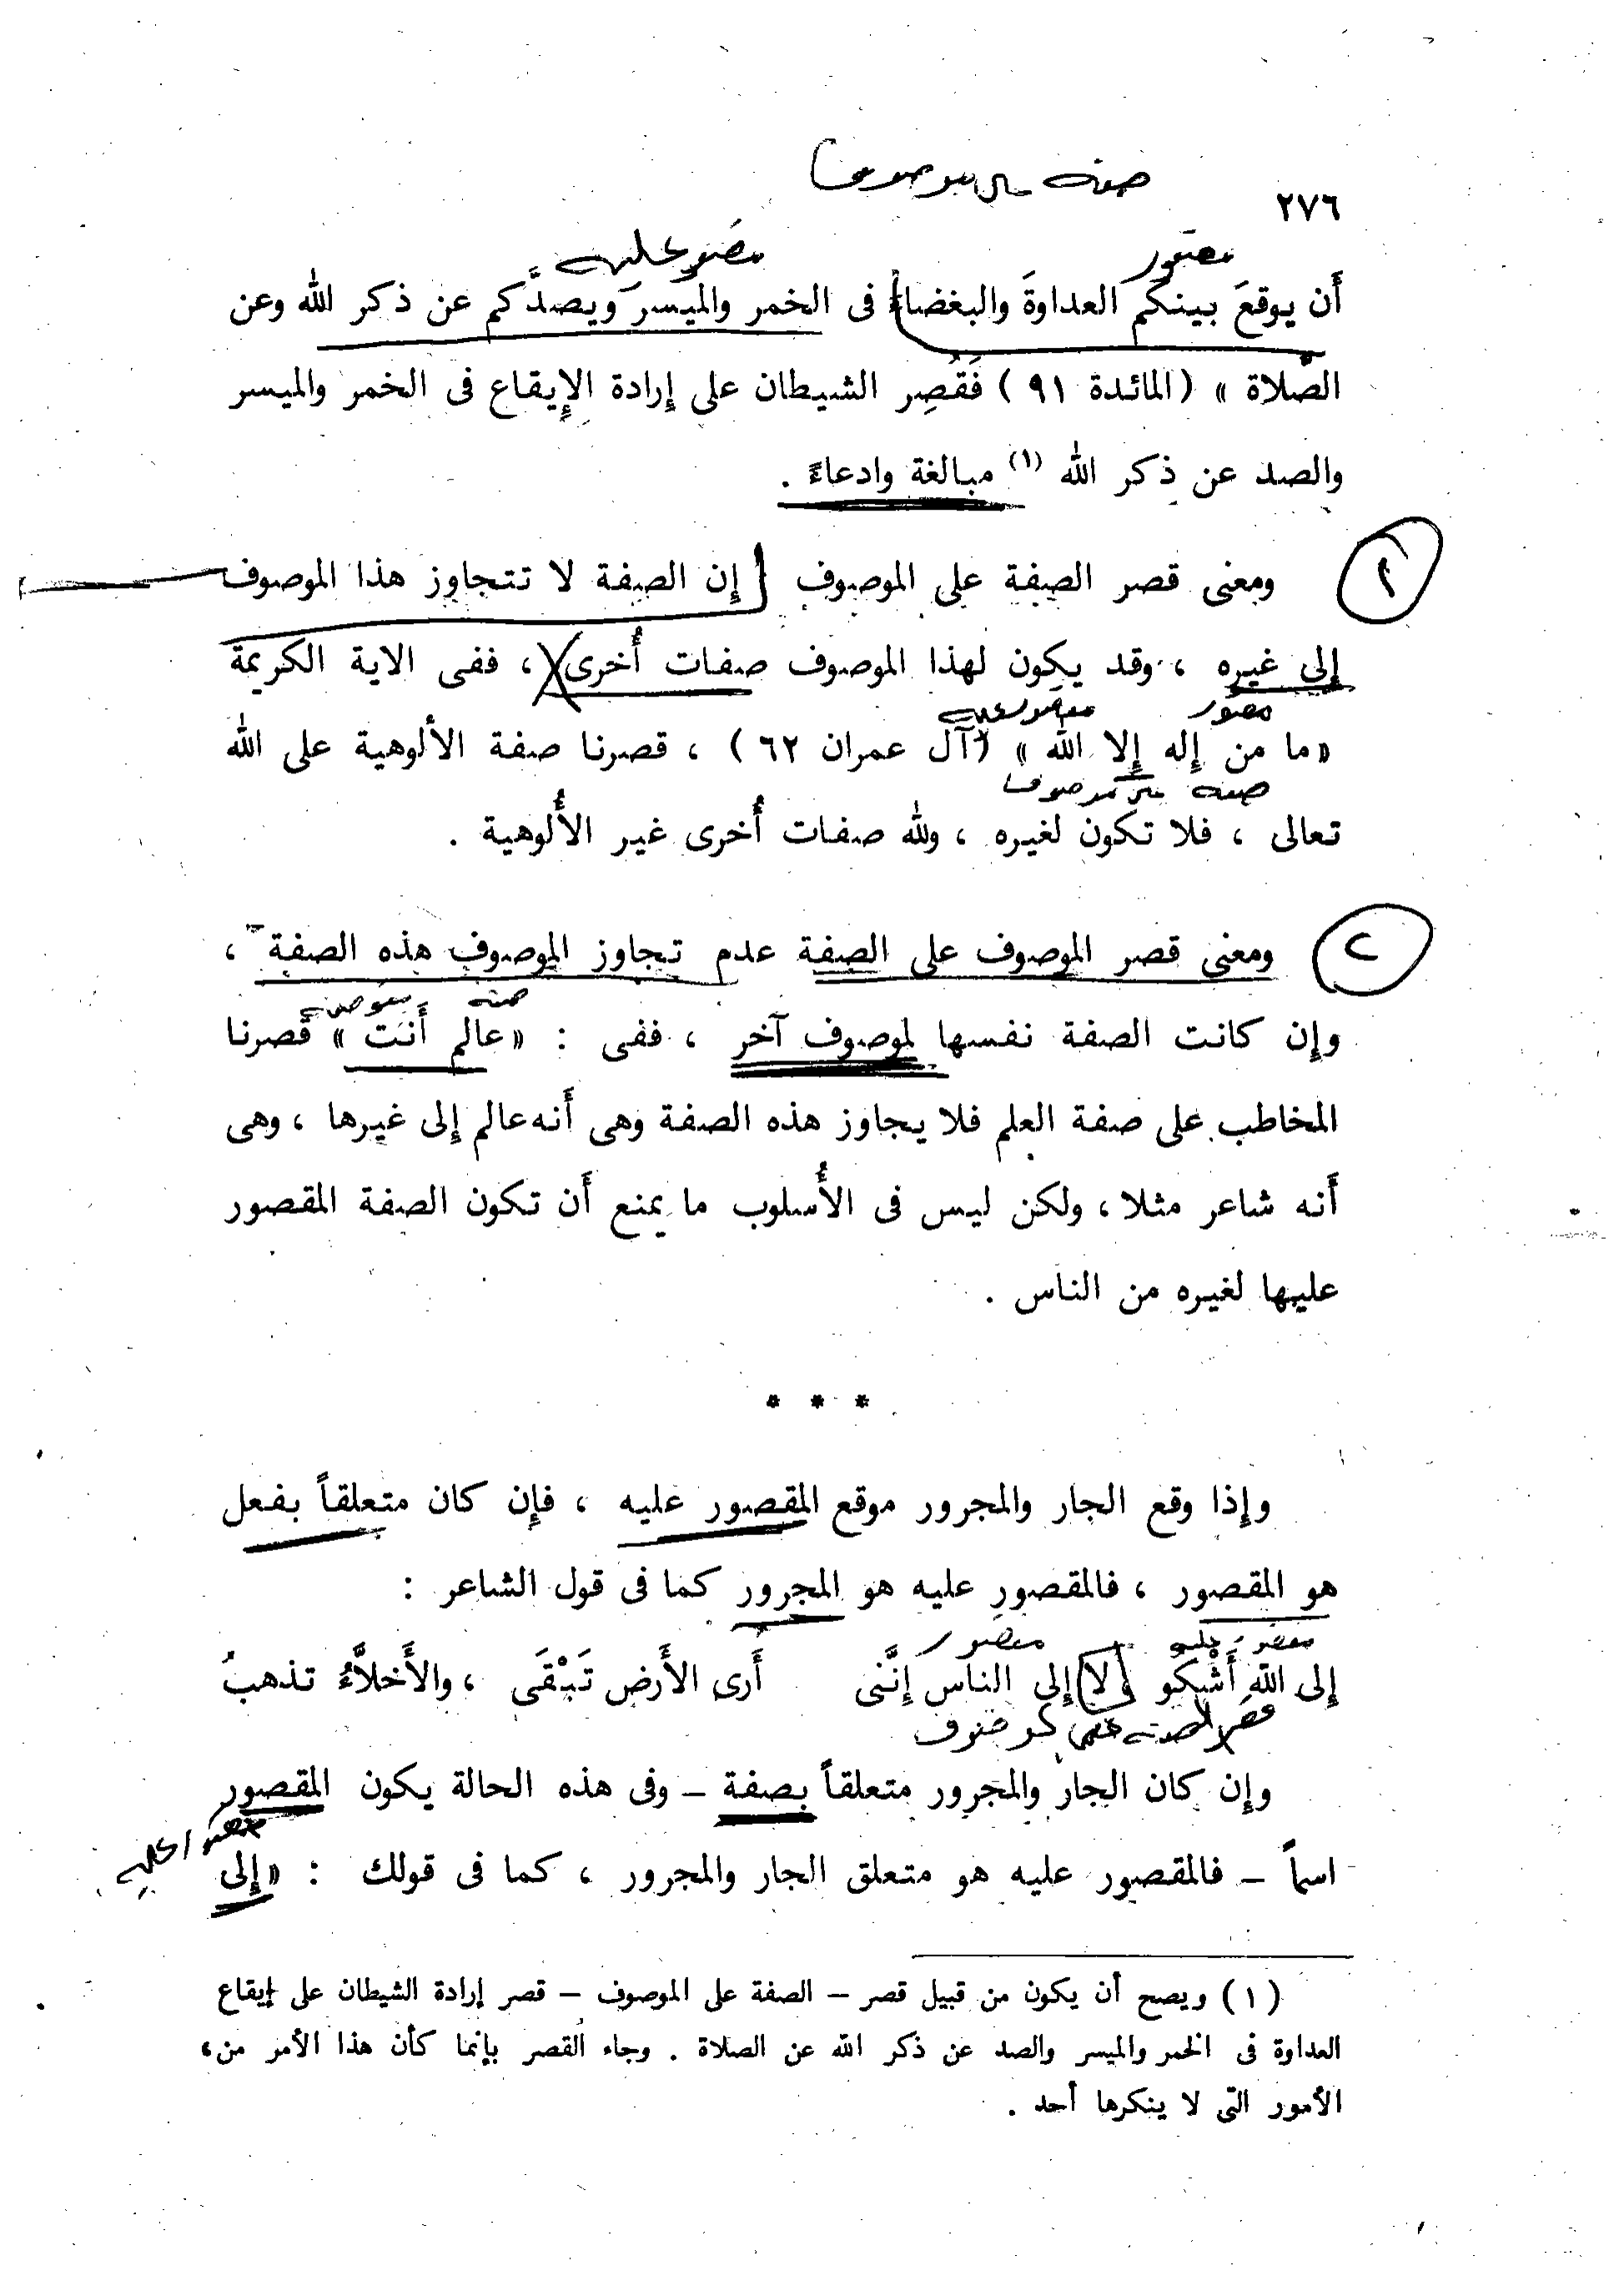 صفة على موصوف
٢٧٦
مقصور مقصور عليه
أَن يوقعَ بينكم العداوةَ والبغضاءَ فى الخمر والميسرَ ويصدَّكم عن ذكر الله وعن
الصَّلاة » (المائدة ٩١ ) فَقُصِر الشيطان على إرادة الإيقاع فى الخمر والميسر
والصد عن ذكر الله (١) مبالغة وادعاءً .
ومعنى قصر الصفة على الموصوف إن الصفة لا تتجاوز هذا الموصوف
إلى غيره ، وقد يكون لهذا الموصوف صفات أُخرى ، ففى الاية الكريمة
مقصور مقصور عليه
« ما من إله إلا الله » (آل عمران ٦٢ ) ، قصرنا صفة الألوهية على الله
صفة على موصوف
تعالى ، فلا تكون لغيره ، ولله صفات أُخرى غير الأُلوهية .
٢ ومعنى قصر الموصوف على الصفة عدم تجاوز الموصوف هذه الصفة ،
صفة موصوف
وإن كانت الصفة نفسها لموصوف آخر ، ففى : « عالم أَنت » قصرنا
المخاطب على صفة العلم فلا يجاوز هذه الصفة وهى أَنه عالم إلى غيرها ، وهى
أَنه شاعر مثلا ، ولكن ليس فى الأُسلوب ما يمنع أَن تكون الصفة المقصور
عليها لغيره من الناس .
* * *
وإذا وقع الجار والمجرور موقع المقصور عليه ، فإن كان متعلقاً بفعل
هو المقصور ، فالمقصور عليه هو المجرور كما فى قول الشاعر :
مقصور عليه مقصور
إلى الله أَشْكو لا إلى الناس إنَّنى أَرى الأَرض تَبْقَى ، والأَخلاَّءُ تذهبُ
قصر الصفة على موصوف
وإن كان الجار والمجرور متعلقاً بصفة – وفى هذه الحالة يكون المقصور
اسماً – فالمقصور عليه هو متعلق الجار والمجرور ، كما فى قولك : « إلى
(١) ويصح أن يكون من قبيل قصر – الصفة على الموصوف – قصر إرادة الشيطان على إيقاع
العداوة فى الخمر والميسر والصد عن ذكر الله عن الصلاة . وجاء القصر بإنما كأن هذا الأمر من
الأمور التى لا ينكرها أحد .